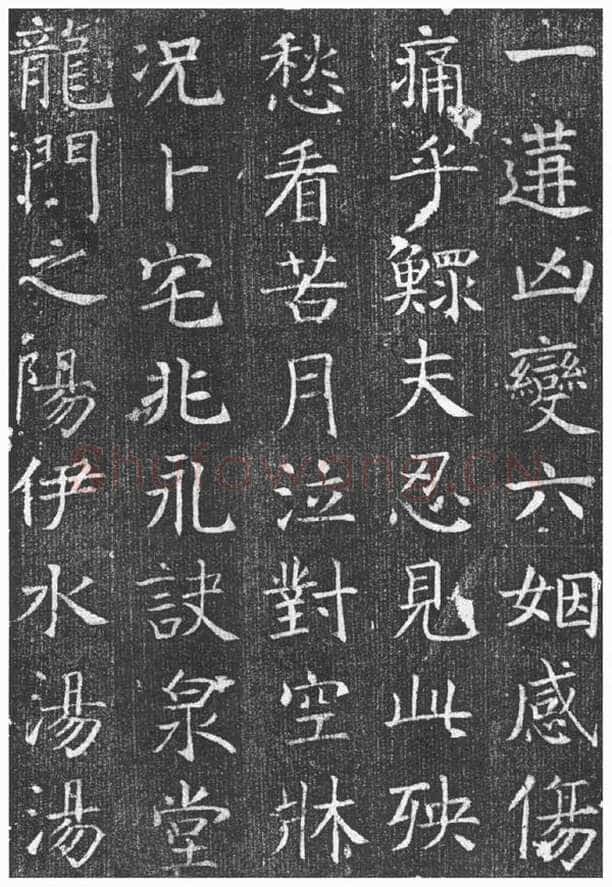 一遘凶變六姻感傷
痛乎鰥夫忍見此殃
愁看苦月泣對空牀
況卜宅兆永訣泉堂
龍門之陽伊水湯湯
Shufawang.CN